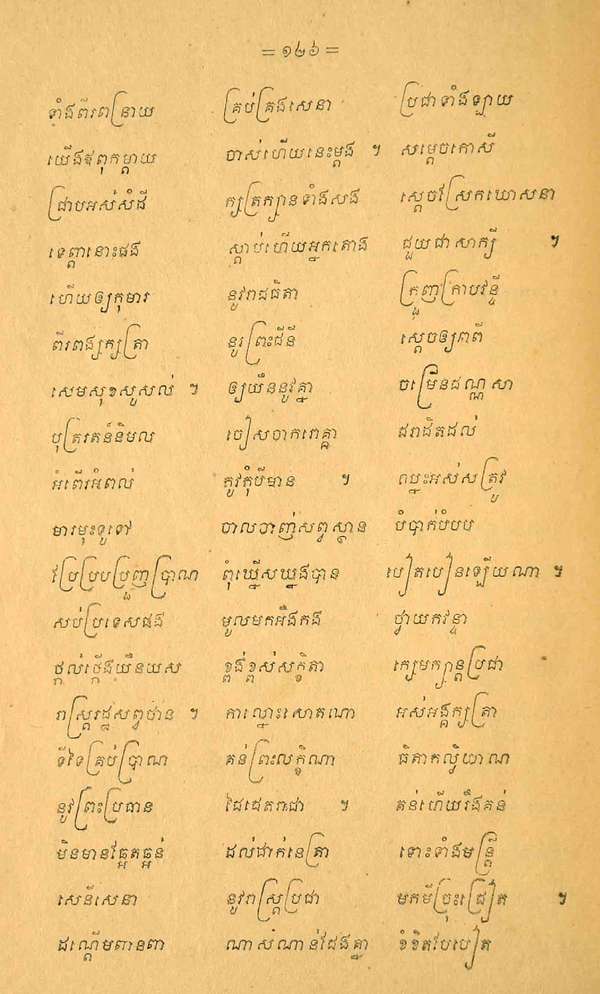 = ១២៦ =
ទាំងពីរពន្រាយ គ្រប់គ្រងសេនា ប្រជាទាំងឡាយ
យើងឪពុកម្ដាយ ចាស់ហើយនេះម្ដង ។ សម្ដេចកោសី
ជ្រាបអស់សំដី ក្សត្រក្សានទាំងសង ស្ដេចស្រែកឃោសនា
ទេព្ដានោះផង ស្ដាប់ហើយអ្នកតោង ជួយជាសាក្សី ។
ហើយឲ្យកុមារ នូវរាជធិតា ក្រួញក្រាបវន្ទី
ពីរពង្សក្សត្រា នូវព្រះជីនី ស្ដេចឲ្យពរពី
សេមសុខសួសល់ ។ ឲ្យយឺននូវគ្នា ចម្រើនដណ្ណសា
បុត្រតន៍និមល ចៀសចាករោគ្គា ជរាជិតដល់
អំពើរអំពល់ កូវកុំបីមាន ។ ឈ្នះអស់សត្រូវ
មារមុះទូទៅ ចាលចាញ់សព្វស្ថាន បំបាក់បំបប
ប្រែប្របប្រួញប្រាណ ពុំឃ្នើសឃ្នងបាន បៀតបៀនឡើយណា ។
សប់ប្រទេសផង មូលមកអឹងកង ថ្វាយកវន្ទា
ថ្កល់ថ្កើងយឺនយស ខ្ពង់ខ្ពស់សក្ខិតា ក្សេមក្សាន្តប្រជា
រាស្ត្ររដ្ឋសព្វឋាន ។ កាល្នោះសោតណា អស់អង្គក្សត្រា
ទីទៃគ្រប់ប្រាណ គន់ព្រះលក្ខិណា ធិតាកល្យិយាណ
នូវព្រះប្រធាន ដៃជេតរាជា ។ គន់ហើយរឹងគន់
មិនមានផ្អែតផ្អន់ ដល់ជាក់នេត្រា ទោះទាំងមន្ត្រី
សេនីសេនា នូវរាស្ត្រប្រជា មកមីជ្រុះជ្រៀត ។
ដណ្ដើមពានពា ណាស់ណាន់ដែងគ្នា ខំខិតបែបៀត